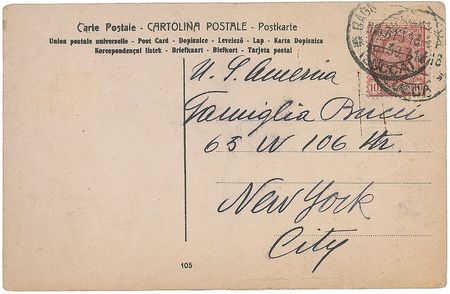 Carte Postale - CARTOLINA POSTALE - Postkarte
Union postale universelle - Post Card - Dopisnice - Levelező - Lap - Karta Dopisnica
Korespondenčni listek - Briefkaart - Biefkort - Tarjeta postal
U. S. America
Famiglia Bucci
65 W 106 Str.
New York
City
10
105